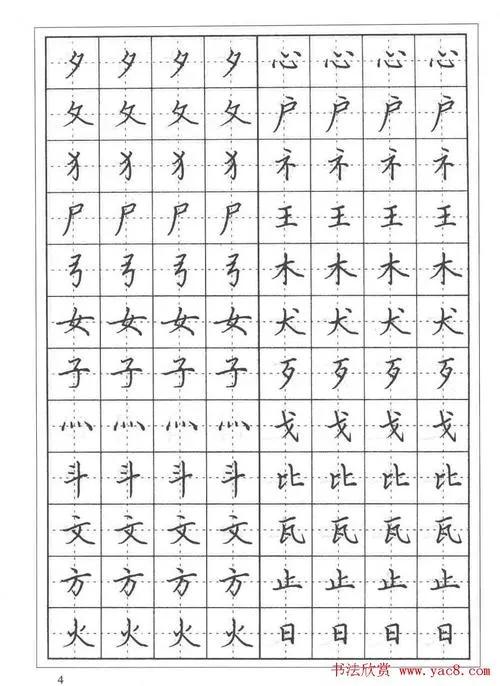 夕夕夕夕心心心心
夂夂夂夂户户户户
犭犭犭犭礻礻礻礻
尸尸尸尸王王王王
弓弓弓弓木木木木
女女女女犬犬犬犬
子子子子歹歹歹歹
灬灬灬灬戈戈戈戈
斗斗斗斗比比比比
文文文文瓦瓦瓦瓦
方方方方止止止止
火火火火日日日日
4
书法欣赏 www.yac8.com